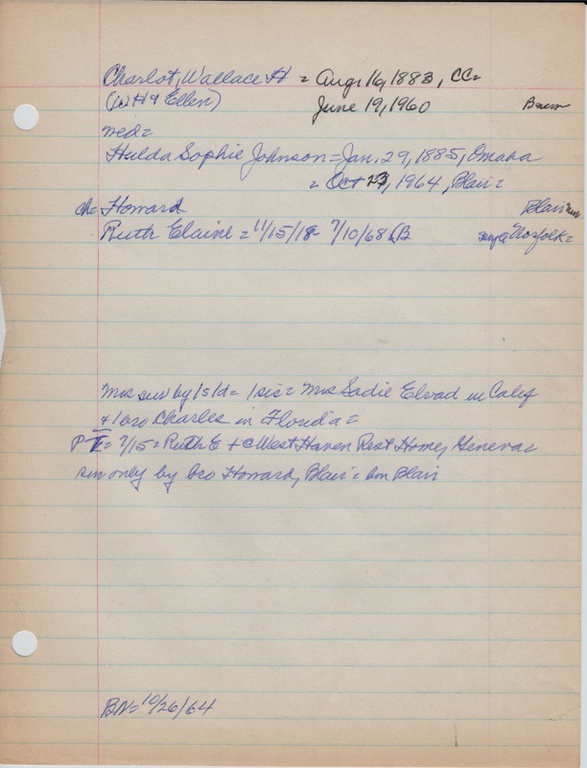 Charlot, Wallace H = Aug. 16, 1883, CC=
(W H & Ellen) June 19, 1960
med=
Hulda Sophie Johnson = Jan. 29, 1885, Omaha
= Oct 23, 1964, Blair=
ch= Howard Blair
Ruth Elaine = 11/15/18= 7/10/68 (B Norfolk=
Mrs sur by 1s 1d= 1 sis= Mrs Sadie Elvad in Calif
& 1 bro Charles in Florida=
P T= 7/15= Ruth E West Haven Rest Home, Geneva=
sur only by bro Howard, Blair= bm Blair
BN= 10/26/64